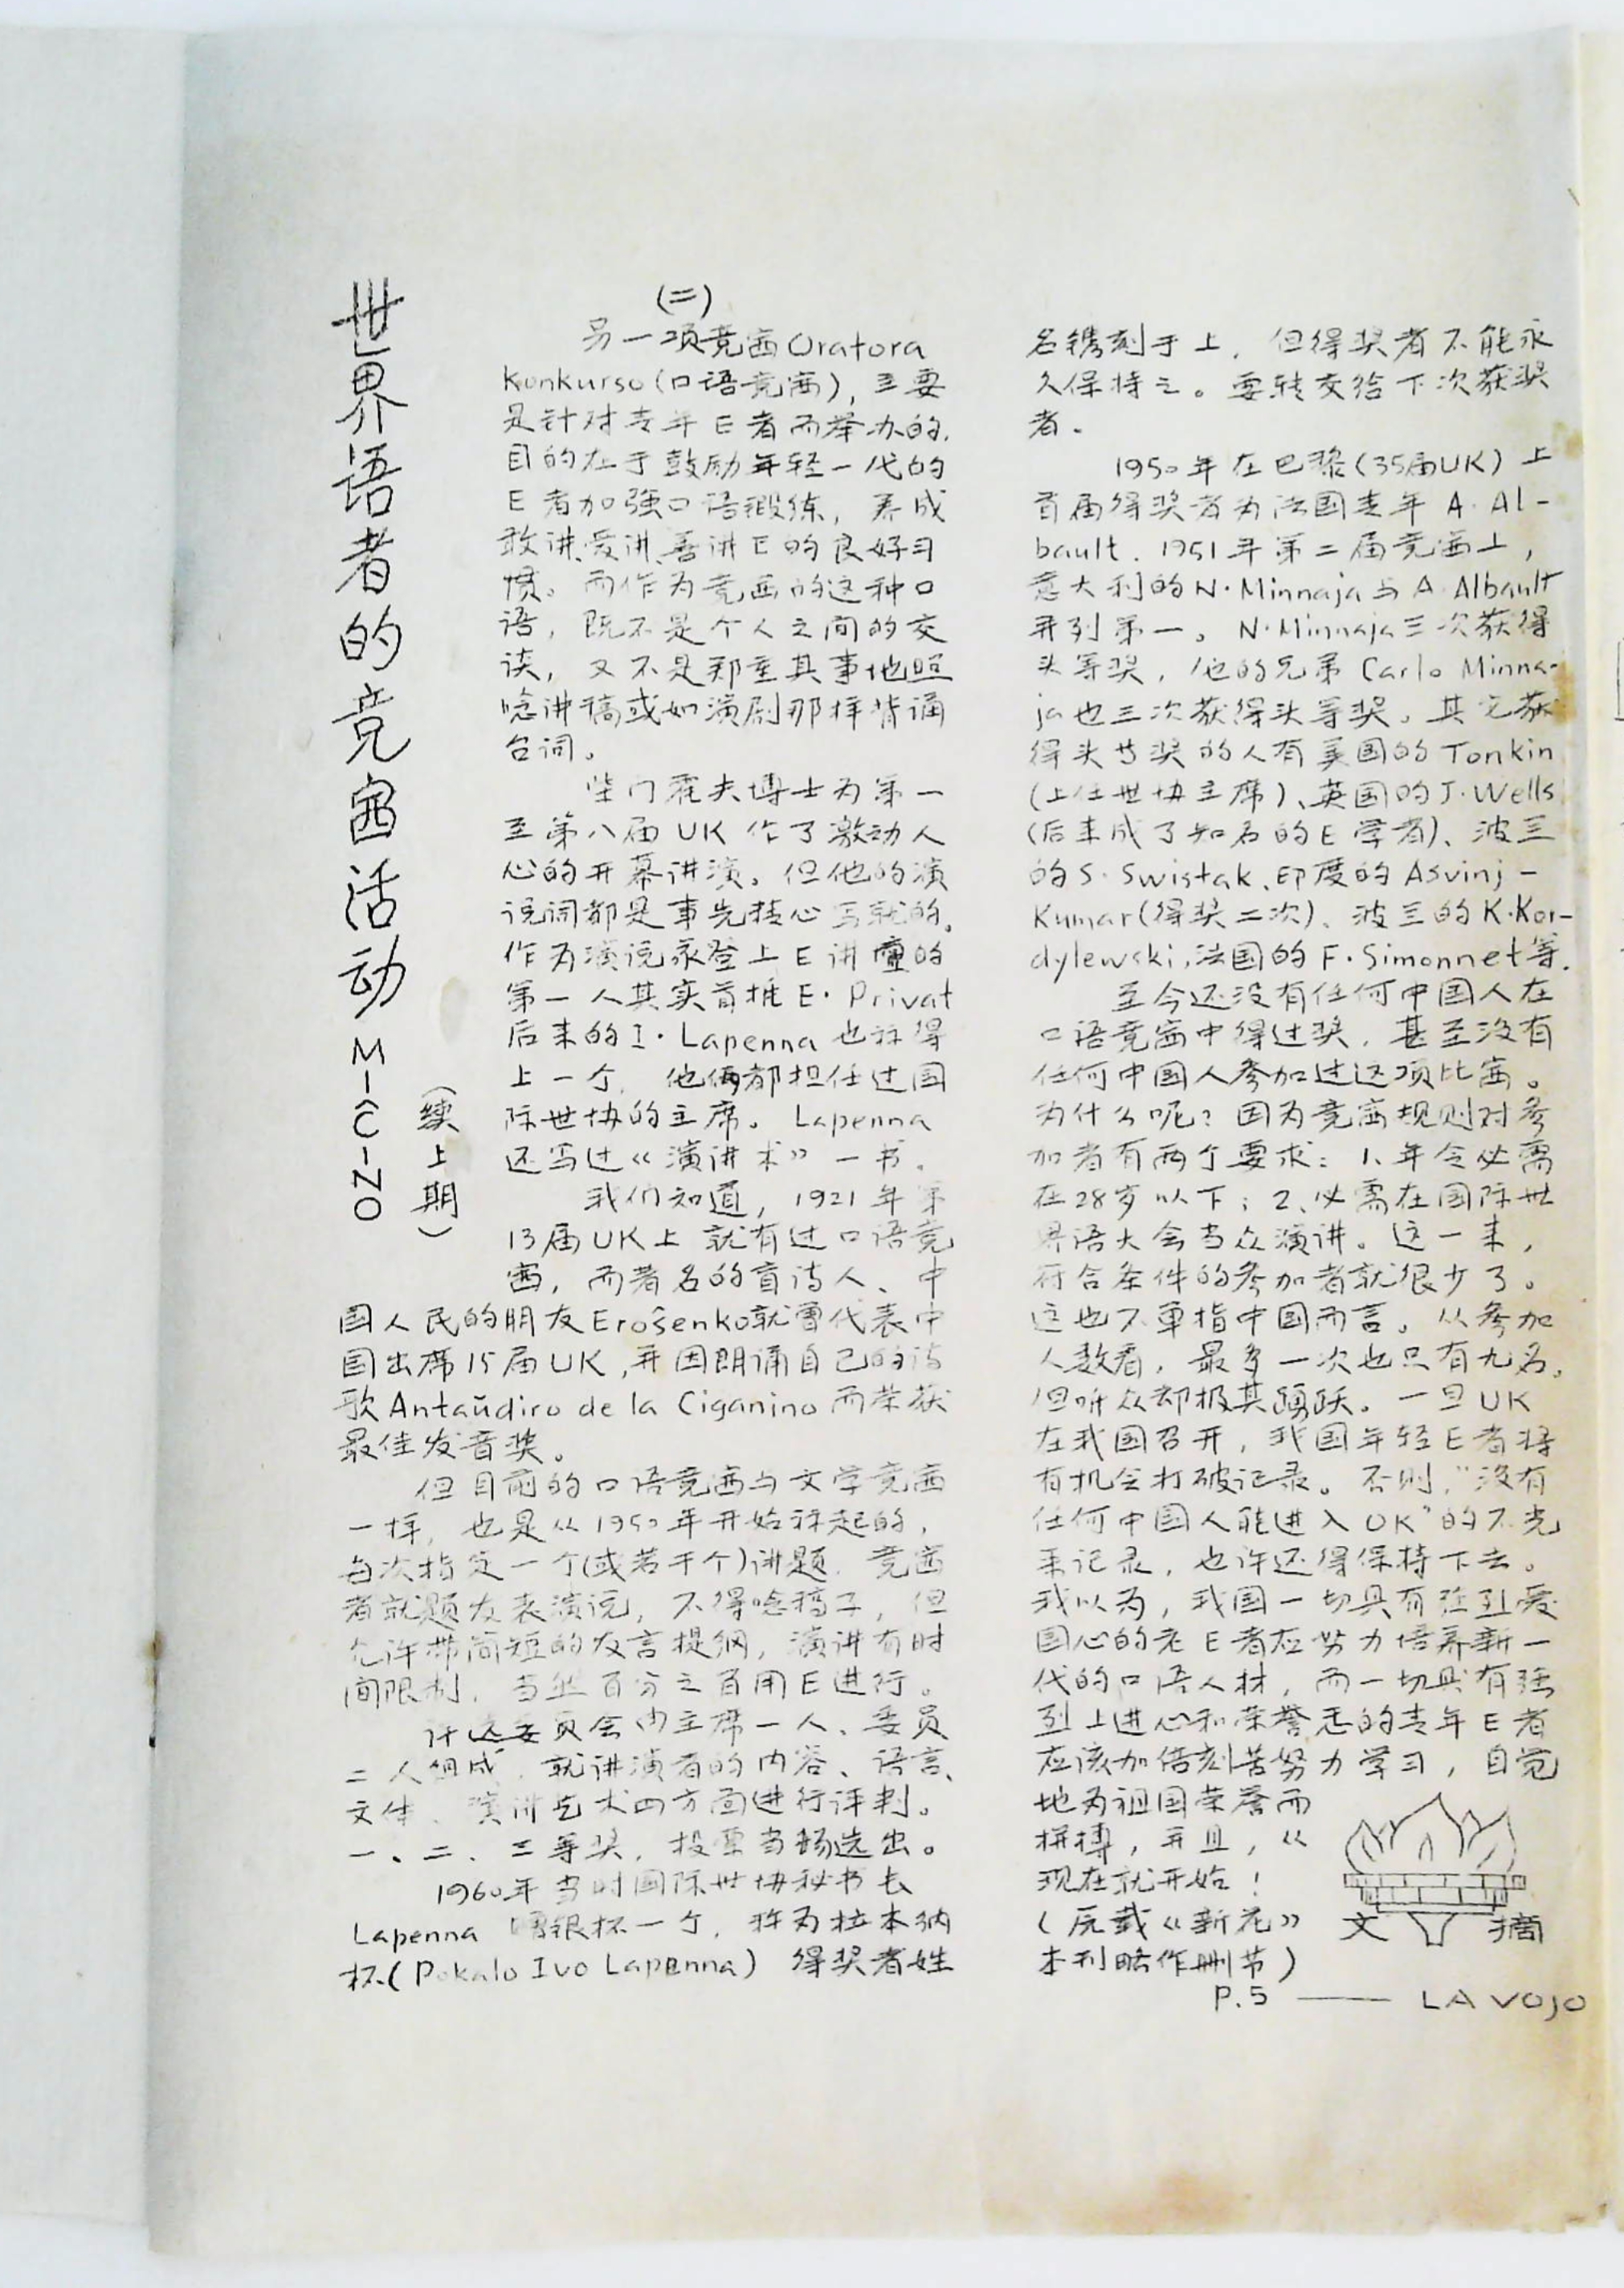 世界语者的竞赛活动 MIĈINO
(续上期)
(二)
另一项竞赛Oratora
Konkurso(口语竞赛),主要
是针对青年E者而举办的,
目的在于鼓励年轻一代的
E者加强口语锻练,养成
敢讲、爱讲、善讲E的良好习
惯。而作为竞赛的这种口
语,既不是个人之间的交
谈,又不是郑重其事地照
唸讲稿或如演剧那样背诵
台词。
柴门霍夫博士为第一
至第八届UK作了激动人
心的开幕讲演。但他的演
说词都是事先精心写就的。
作为演说家登上E讲壇的
第一人其实首推E·Privat
后来的I·Lapenna也称得
上一个,他俩都担任过国
际世协的主席。Lapenna
还写过《演讲术》一书。
我们知道,1921年第
13届UK上就有过口语竞
赛,而著名的盲诗人、中
国人民的朋友Eroŝenko就曾代表中
国出席15届UK,并因朗诵自己的诗
歌Antaŭdiro de la Ciganino而荣获
最佳发音奖。
但目前的口语竞赛与文学竞赛
一样,也是从1950年开始称起的,
每次指定一个(或若干个)讲题,竞赛
者就题发表演说,不得唸稿子,但
允许带简短的发言提纲,演讲有时
间限制,当然百分之百用E进行。
评选委员会由主席一人、委员
二人组成,就讲演者的内容、语言、
文体、演讲艺术四方面进行评判。
一、二、三等奖,投票当场选出。
1960年当时国际世协秘书长
Lapenna 赠银杯一个,称为拉本纳
杯(Pokalo Ivo Lapenna) 得奖者姓
名镌刻于上,但得奖者不能永
久保持之。要转交给下次获奖
者。
1950年在巴黎(35届UK)上
首届得奖者为法国青年A·Al-
bault.1951年第二届竞赛上,
意大利的N·Minnaja与A·Albault
并列第一。N·Minnaja三次获得
头等奖,他的兄弟Carlo Minna-
ja也三次获得头等奖。其它获
得头等奖的人有英国的Tonkin
(上任世协主席)、英国的J·Wells
(后来成了知名的E学者)、波兰
的S·Swistak、印度的Asvinj-
Kumar(得奖二次)、波兰的K·Kor-
dylewski,法国的F·Simonnet等.
至今还没有任何中国人在
口语竞赛中得过奖,甚至没有
任何中国人参加过这项比赛。
为什么呢?因为竞赛规则对参
加者有两个要求:1、年令必需
在28岁以下;2、必需在国际世
界语大会当众演讲。这一来,
符合条件的参加者就很少了。
这也不单指中国而言。从参加
人数看,最多一次也只有九名,
但听众却极其踴跃。一旦UK
在我国召开,我国年轻E者将
有机会打破记录。否则,"没有
任何中国人能进入OK"的不光
采记录,也许还得保持下去。
我以为,我国一切具有强烈爱
国心的老E者应努力培养新一
代的口语人材,而一切具有强
烈上进心和荣誉感的青年E者
应该加倍刻苦努力学习,自觉
地为祖国荣誉而
拼搏,并且,《
现在就开始!
(原载《新花》
本刊略作删节)
文 摘
P.5 —— LA VOJO